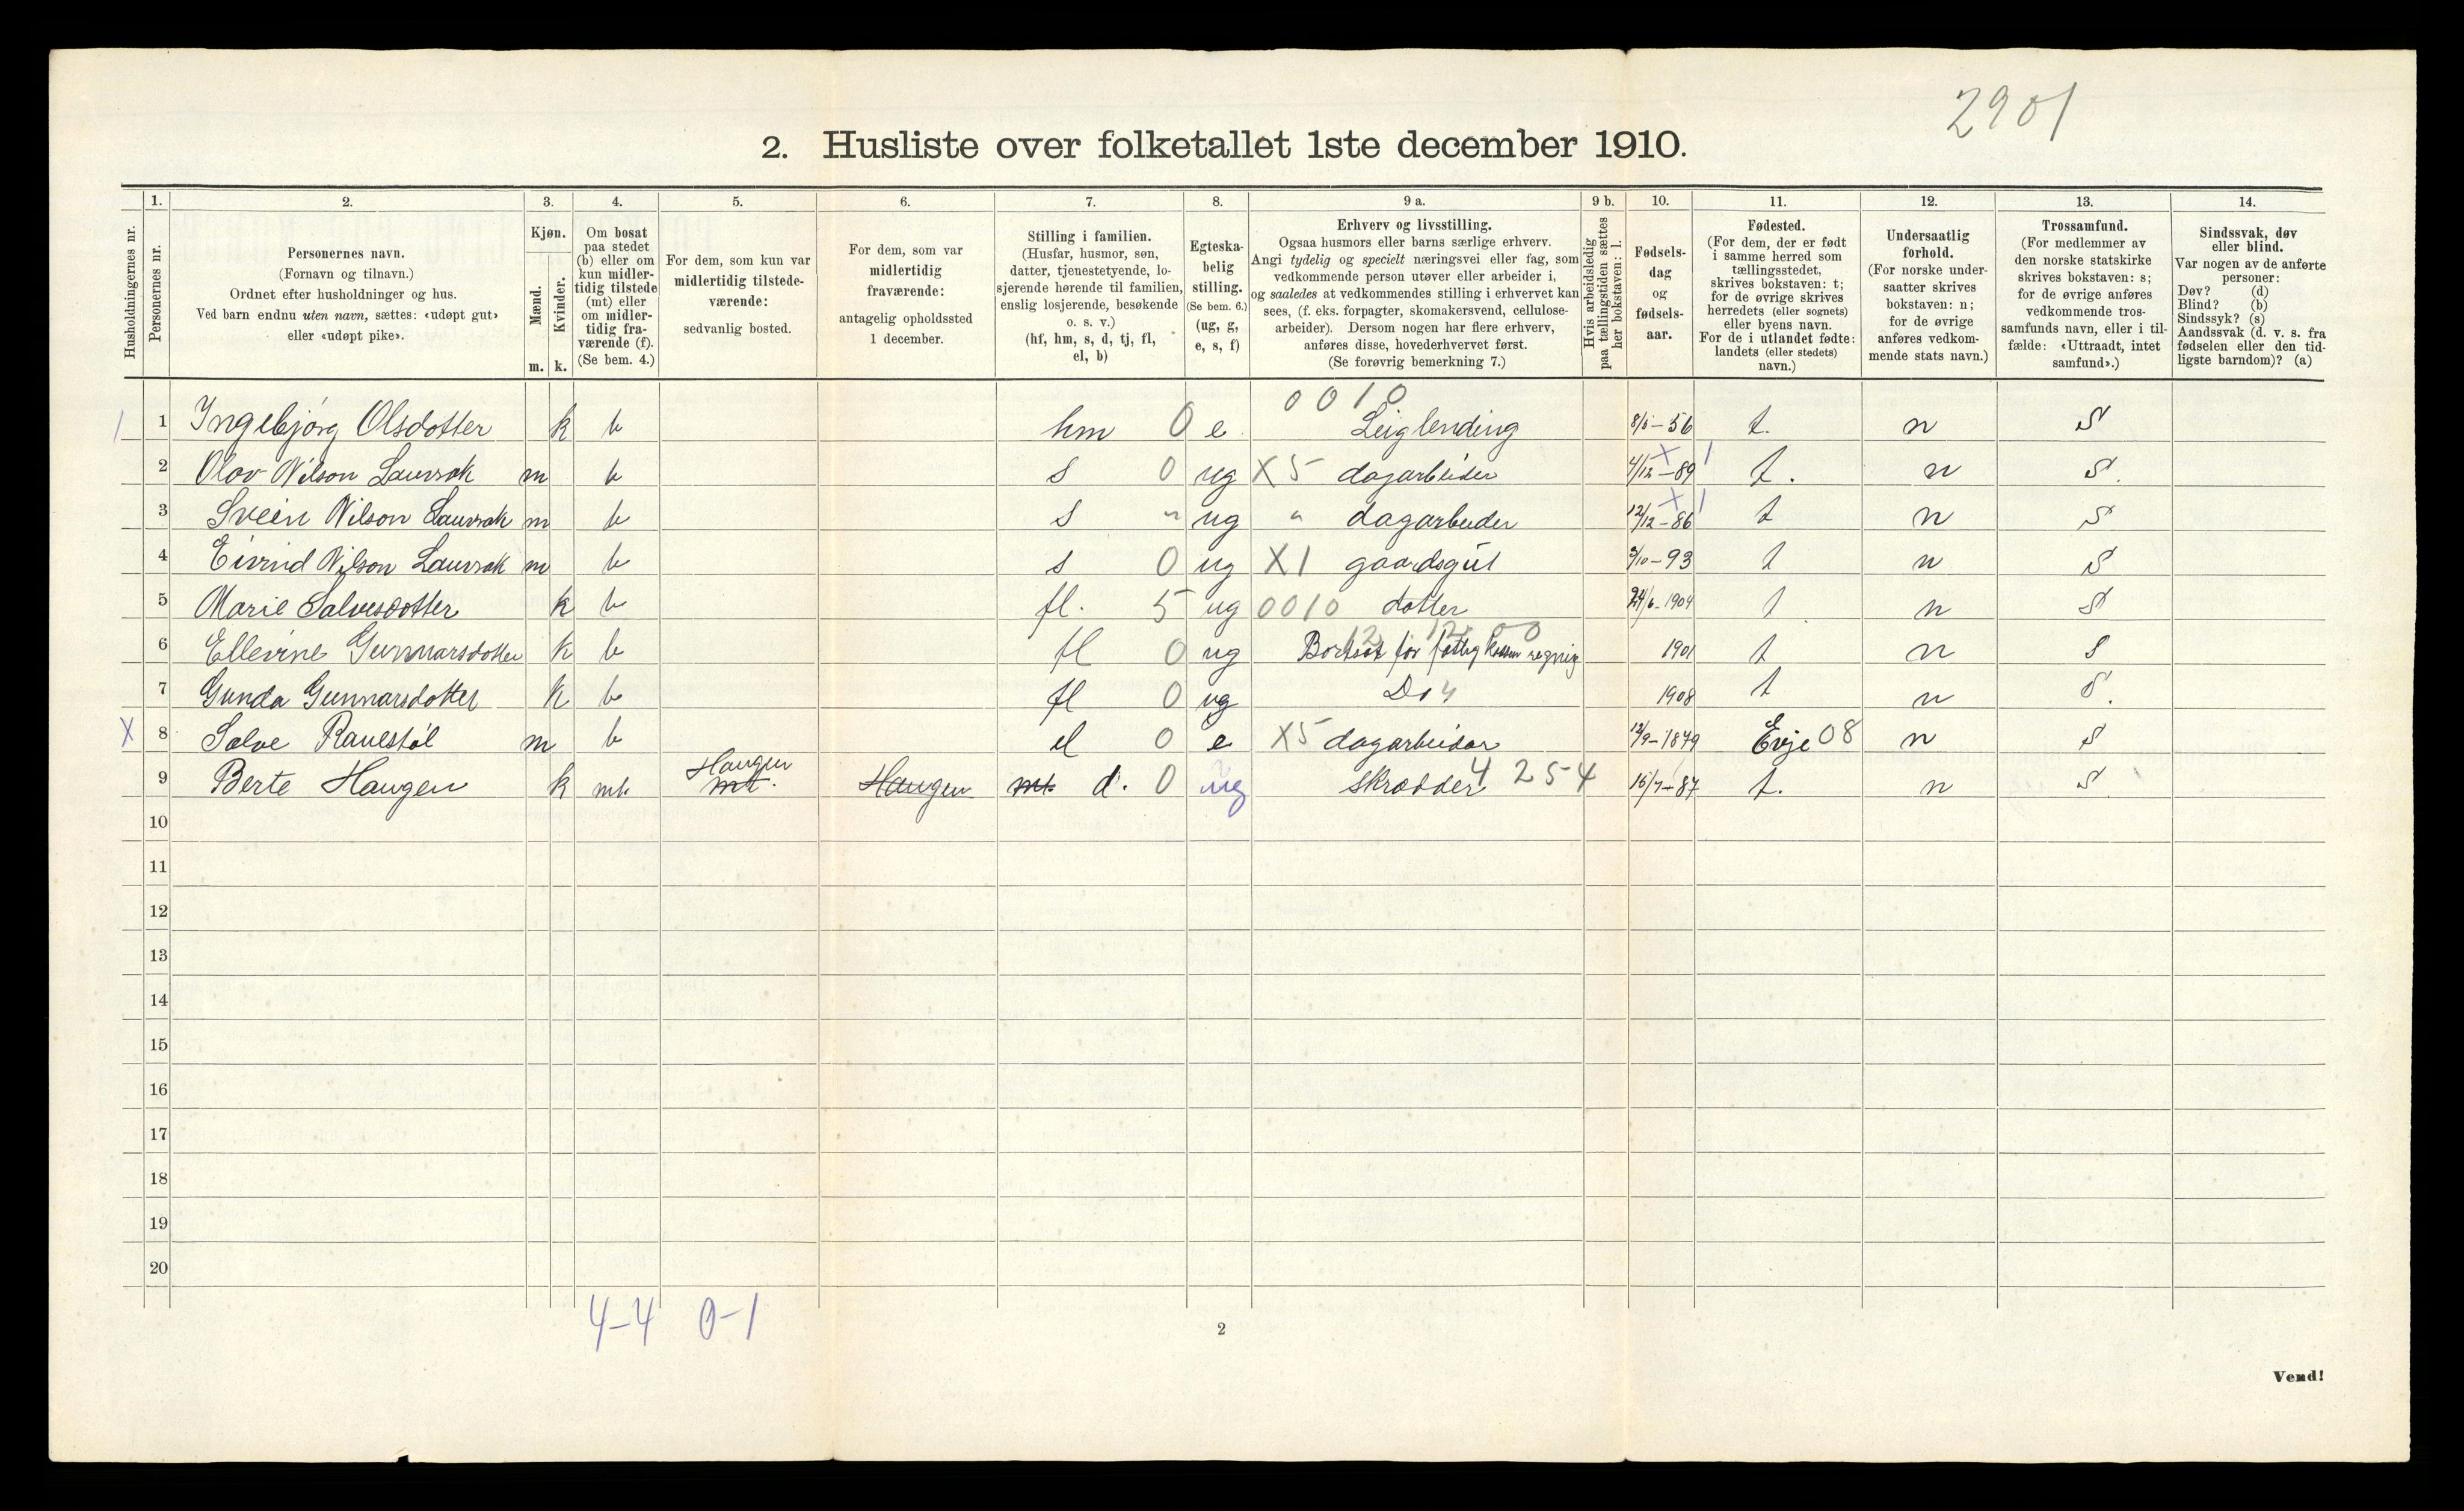 2901
2. Husliste over folketallet 1ste december 1910.
Husholdningernes nr.
1. Personernes nr.
2. Personernes navn.
(Fornavn og tilnavn.)
Ordnet efter husholdninger og hus.
Ved barn endnu uten navn, sættes: «udøpt gut»
eller «udøpt pike».
3. Kjøn.
Mænd. Kvinder.
m. k.
4. Om bosat
paa stedet
(b) eller om
kun midler-
tidig tilstede
(mt) eller
om midler-
tidig fra-
værende (f).
(Se bem. 4.)
5. For dem, som kun var
midlertidig tilstede-
værende:
sedvanlig bosted.
6. For dem, som var
midlertidig
fraværende:
antagelig opholdssted
1 december.
7. Stilling i familien.
(Husfar, husmor, søn,
datter, tjenestetyende, lo-
sjerende hørende til familien,
enslig losjerende, besøkende
o. s. v.)
(hf, hm, s, d, tj, fl,
el, b)
8. Egteska-
belig
stilling.
(Se bem. 6.)
(ug, g,
e, s, f)
9 a. Erhverv og livsstilling.
Ogsaa husmors eller barns særlige erhverv.
Angi tydelig og specielt næringsvei eller fag, som
vedkommende person utøver eller arbeider i,
og saaledes at vedkommendes stilling i erhvervet kan
sees, (f. eks. forpagter, skomakersvend, cellulose-
arbeider). Dersom nogen har flere erhverv,
anføres disse, hovederhvervet først.
(Se forøvrig bemerkning 7.)
9 b. Hvis arbeidsledig
paa tællingstiden sættes
her bokstaven: l.
10. Fødsels-
dag
og
fødsels-
aar.
11. Fødested.
(For dem, der er født
i samme herred som
tællingsstedet,
skrives bokstaven: t;
for de øvrige skrives
herredets (eller sognets)
eller byens navn.
For de i utlandet fødte:
landets (eller stedets)
navn.)
12. Undersaatlig
forhold.
(For norske under-
saatter skrives
bokstaven: n;
for de øvrige
anføres vedkom-
mende stats navn.)
13. Trossamfund.
(For medlemmer av
den norske statskirke
skrives bokstaven: s;
for de øvrige anføres
vedkommende tros-
samfunds navn, eller i til-
fælde: «Uttraadt, intet
samfund».)
14. Sindssvak, døv
eller blind.
Var nogen av de anførte
personer:
Døv? (d)
Blind? (b)
Sindssyk? (s)
Aandssvak (d. v. s. fra
fødselen eller den tid-
ligste barndom)? (a)
0 0 1 0
1 1 Ingebjørg Olsdotter k b hm 0 e Leiglending 56 t. n S
2 Olov Nilson Lauvrak m b s 0 ug X5 dagarbeider 4/12-89 t. n S.
3 Svein Nilson Lauvrak m b s " ug " dagarbeider 12/12-86 t n S
4 Eivind Nilson Lauvrak m b s 0 ug X1 gaardsgut 3/10-93 t n S
5 Marie Salvesdotter k b fl. 5 ug 0010 dotter 24/6-1904 t n S
6 Ellevine Gunnarsdotter k b fl 0 ug Bortsat for 1901 t n S
7 Gunda Gunnarsdotter k b fl 0 ug Do 1908 t n S.
X 8 Salve Ranestøl m b el 0 e X5 dagarbeidar 12/9-1879 Evje 08 n S
Haugen
9 Berte Haugen k mt mt. Haugen mt. d. 0 ug skrædder 4 254 15/7-87 t. n S.
10
11
12
13
14
15
16
17
18
19
20
4-4 0-1
2
Vend!